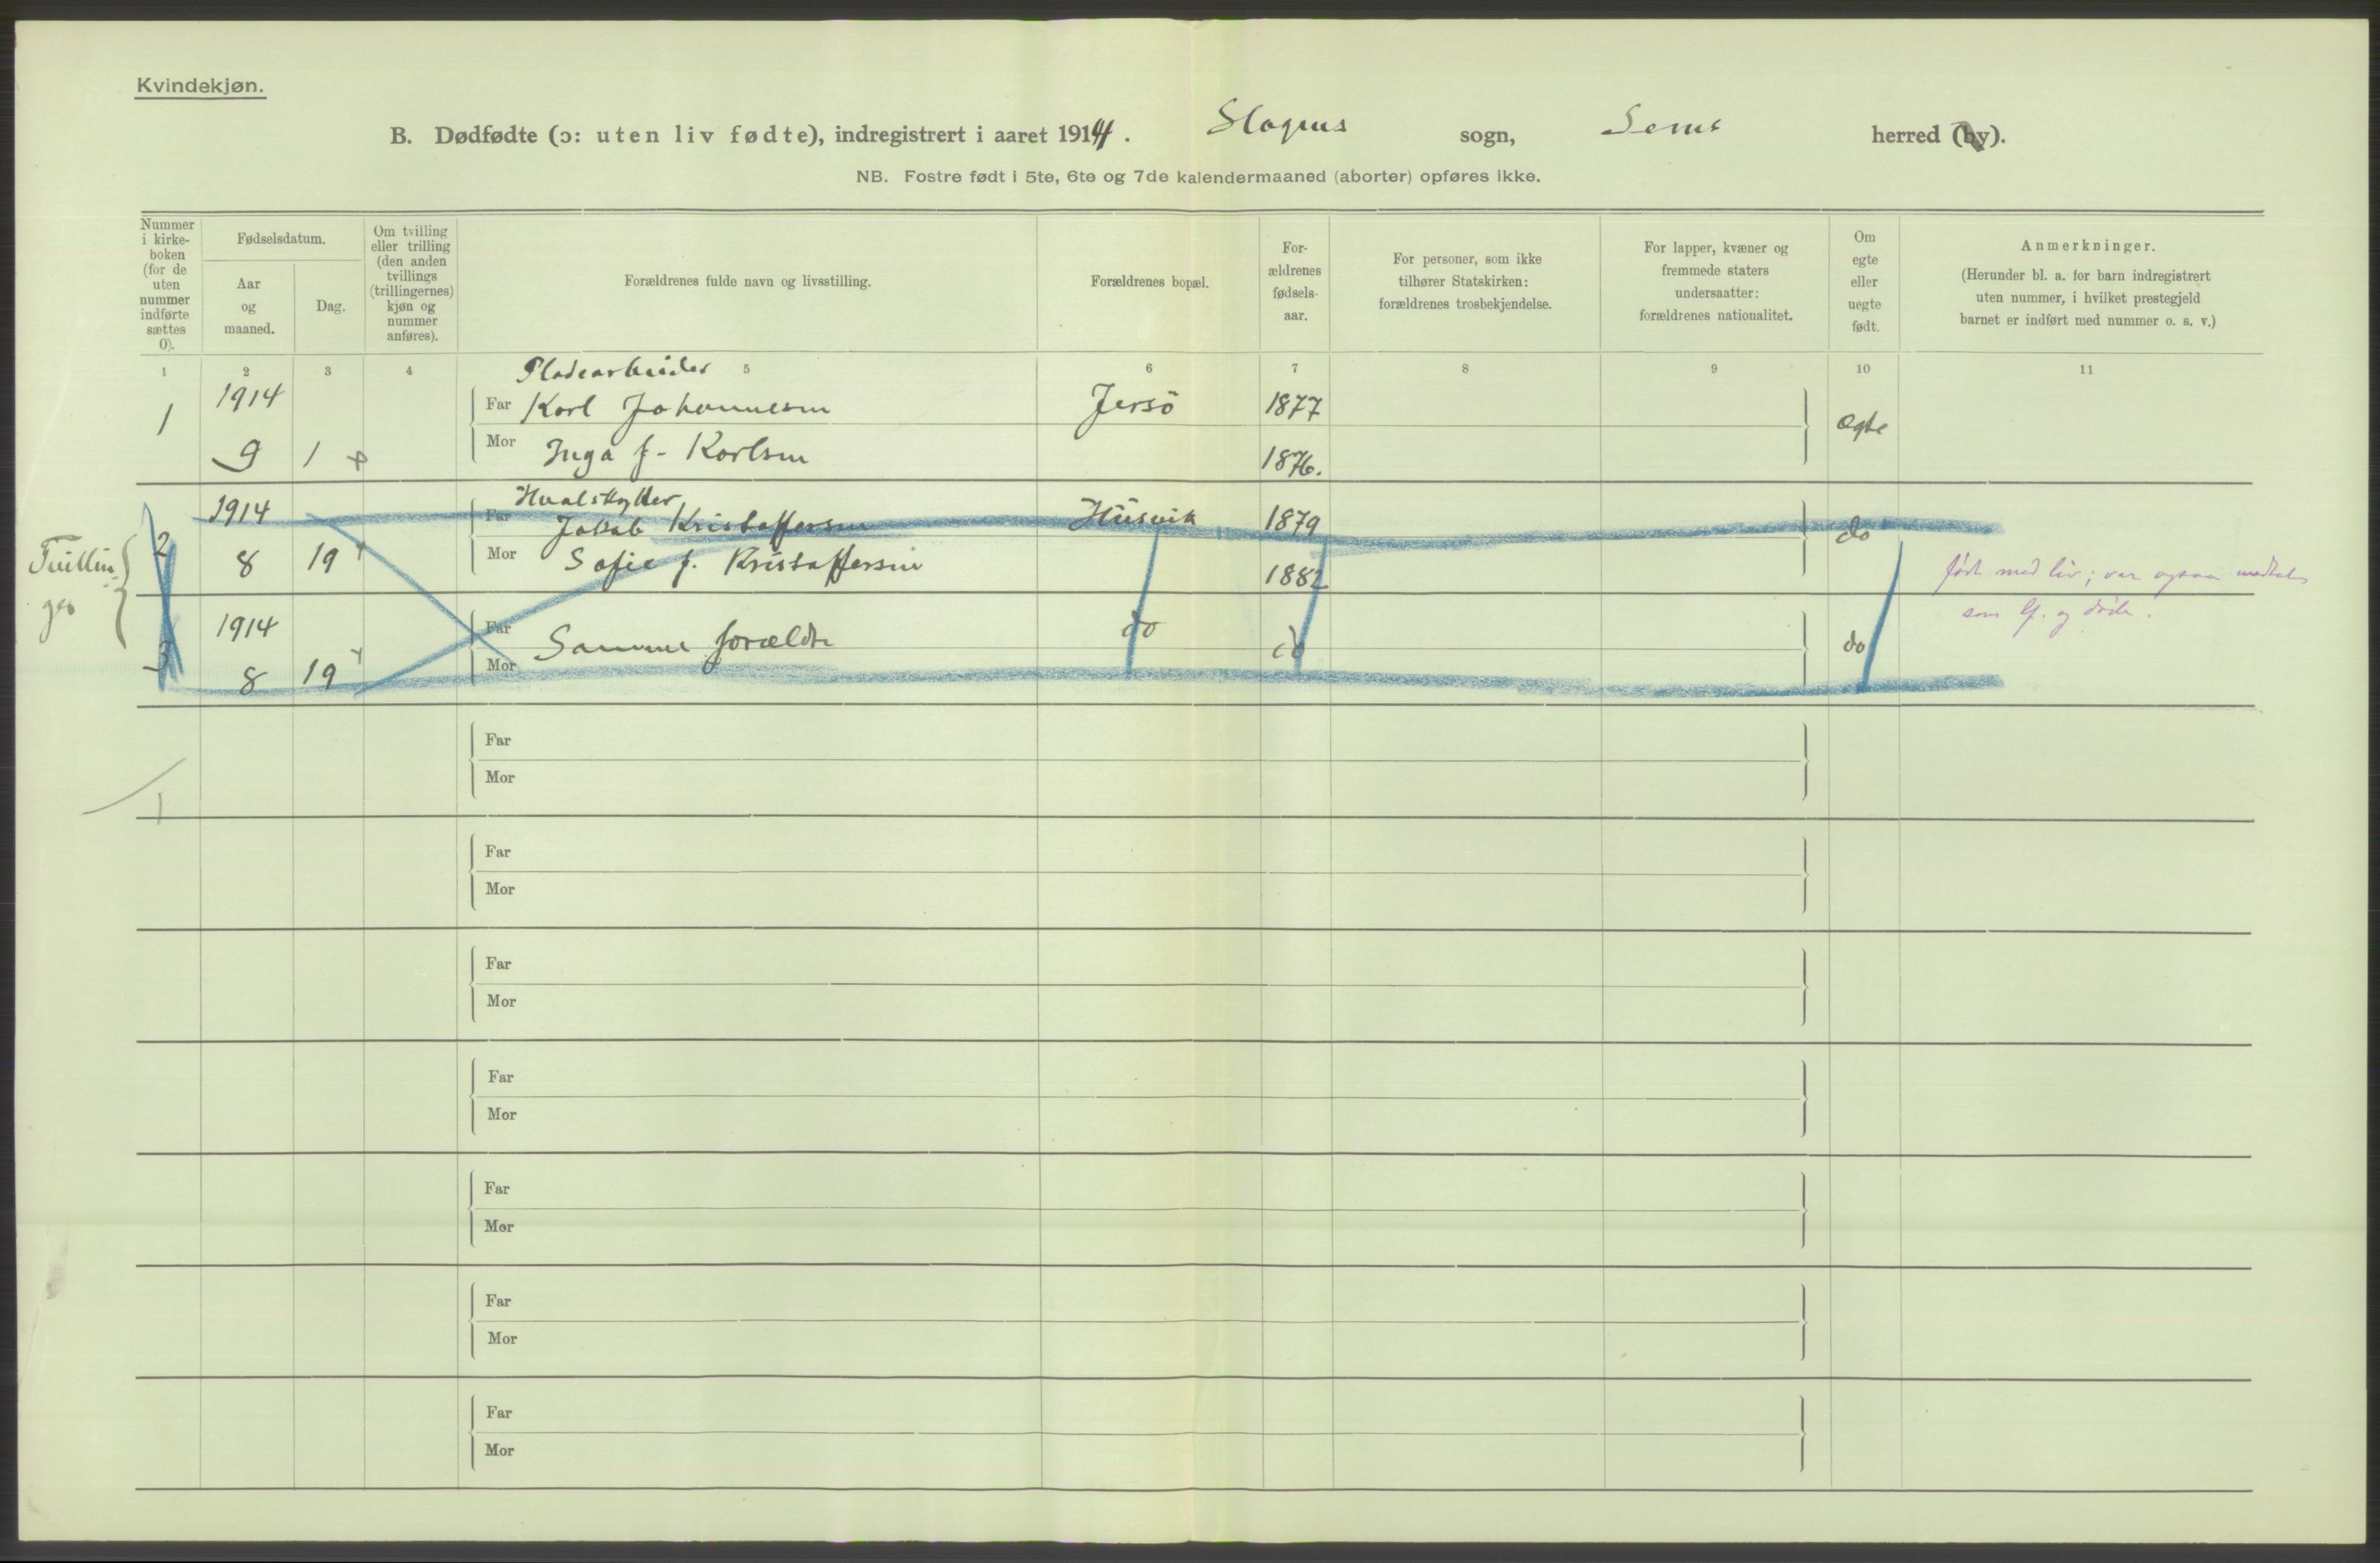 Kvindekjøn.
B. Dødfødte (ɔ: uten liv fødte), indregistrert i aaret 1914. Slagens sogn, Sems herred (by).
NB. Fostre født i 5te, 6te og 7de kalendermaaned (aborter) opføres ikke.
Nummer
i kirke-
boken
(for de
uten
nummer
indførte
sættes
0).
Fødselsdatum.
Aar
og
maaned.
Dag.
Om tvilling
eller trilling
(den anden
tvillings
(trillingernes)
kjøn og
nummer
anføres).
Forældrenes fulde navn og livsstilling.
Forældrenes bopæl.
For-
ældrenes
fødsels-
aar.
For personer, som ikke
tilhører Statskirken:
forældrenes trosbekjendelse.
For lapper, kvæner og
fremmede staters
undersaatter:
forældrenes nationalitet.
Om
egte
eller
uegte
født.
Anmerkninger.
(Herunder bl. a. for barn indregistrert
uten nummer, i hvilket prestegjeld
barnet er indført med nummer o. s. v.)
1 2 3 4 5 6 7 8 9 10 11
Pladearbeider
1 1914 Far Karl Johannesen Jersö 1877 Ægte
9 1 Mor Inga f. Karlsen 1876.
Hvalskytter
2 1914 Far Jakob Kristoffersen Húsvik 1879 do
8 19 Mor Sofie f. Kristoffersen 1882
Tvillin
ger
født med liv; var ogsaa
som lf. og døde.
3 1914 Far Samme forældre do do do
8 19 Mor
Far
Mor
1
Far
Mor
Far
Mor
Far
Mor
Far
Mor
Far
Mor
Far
Mor